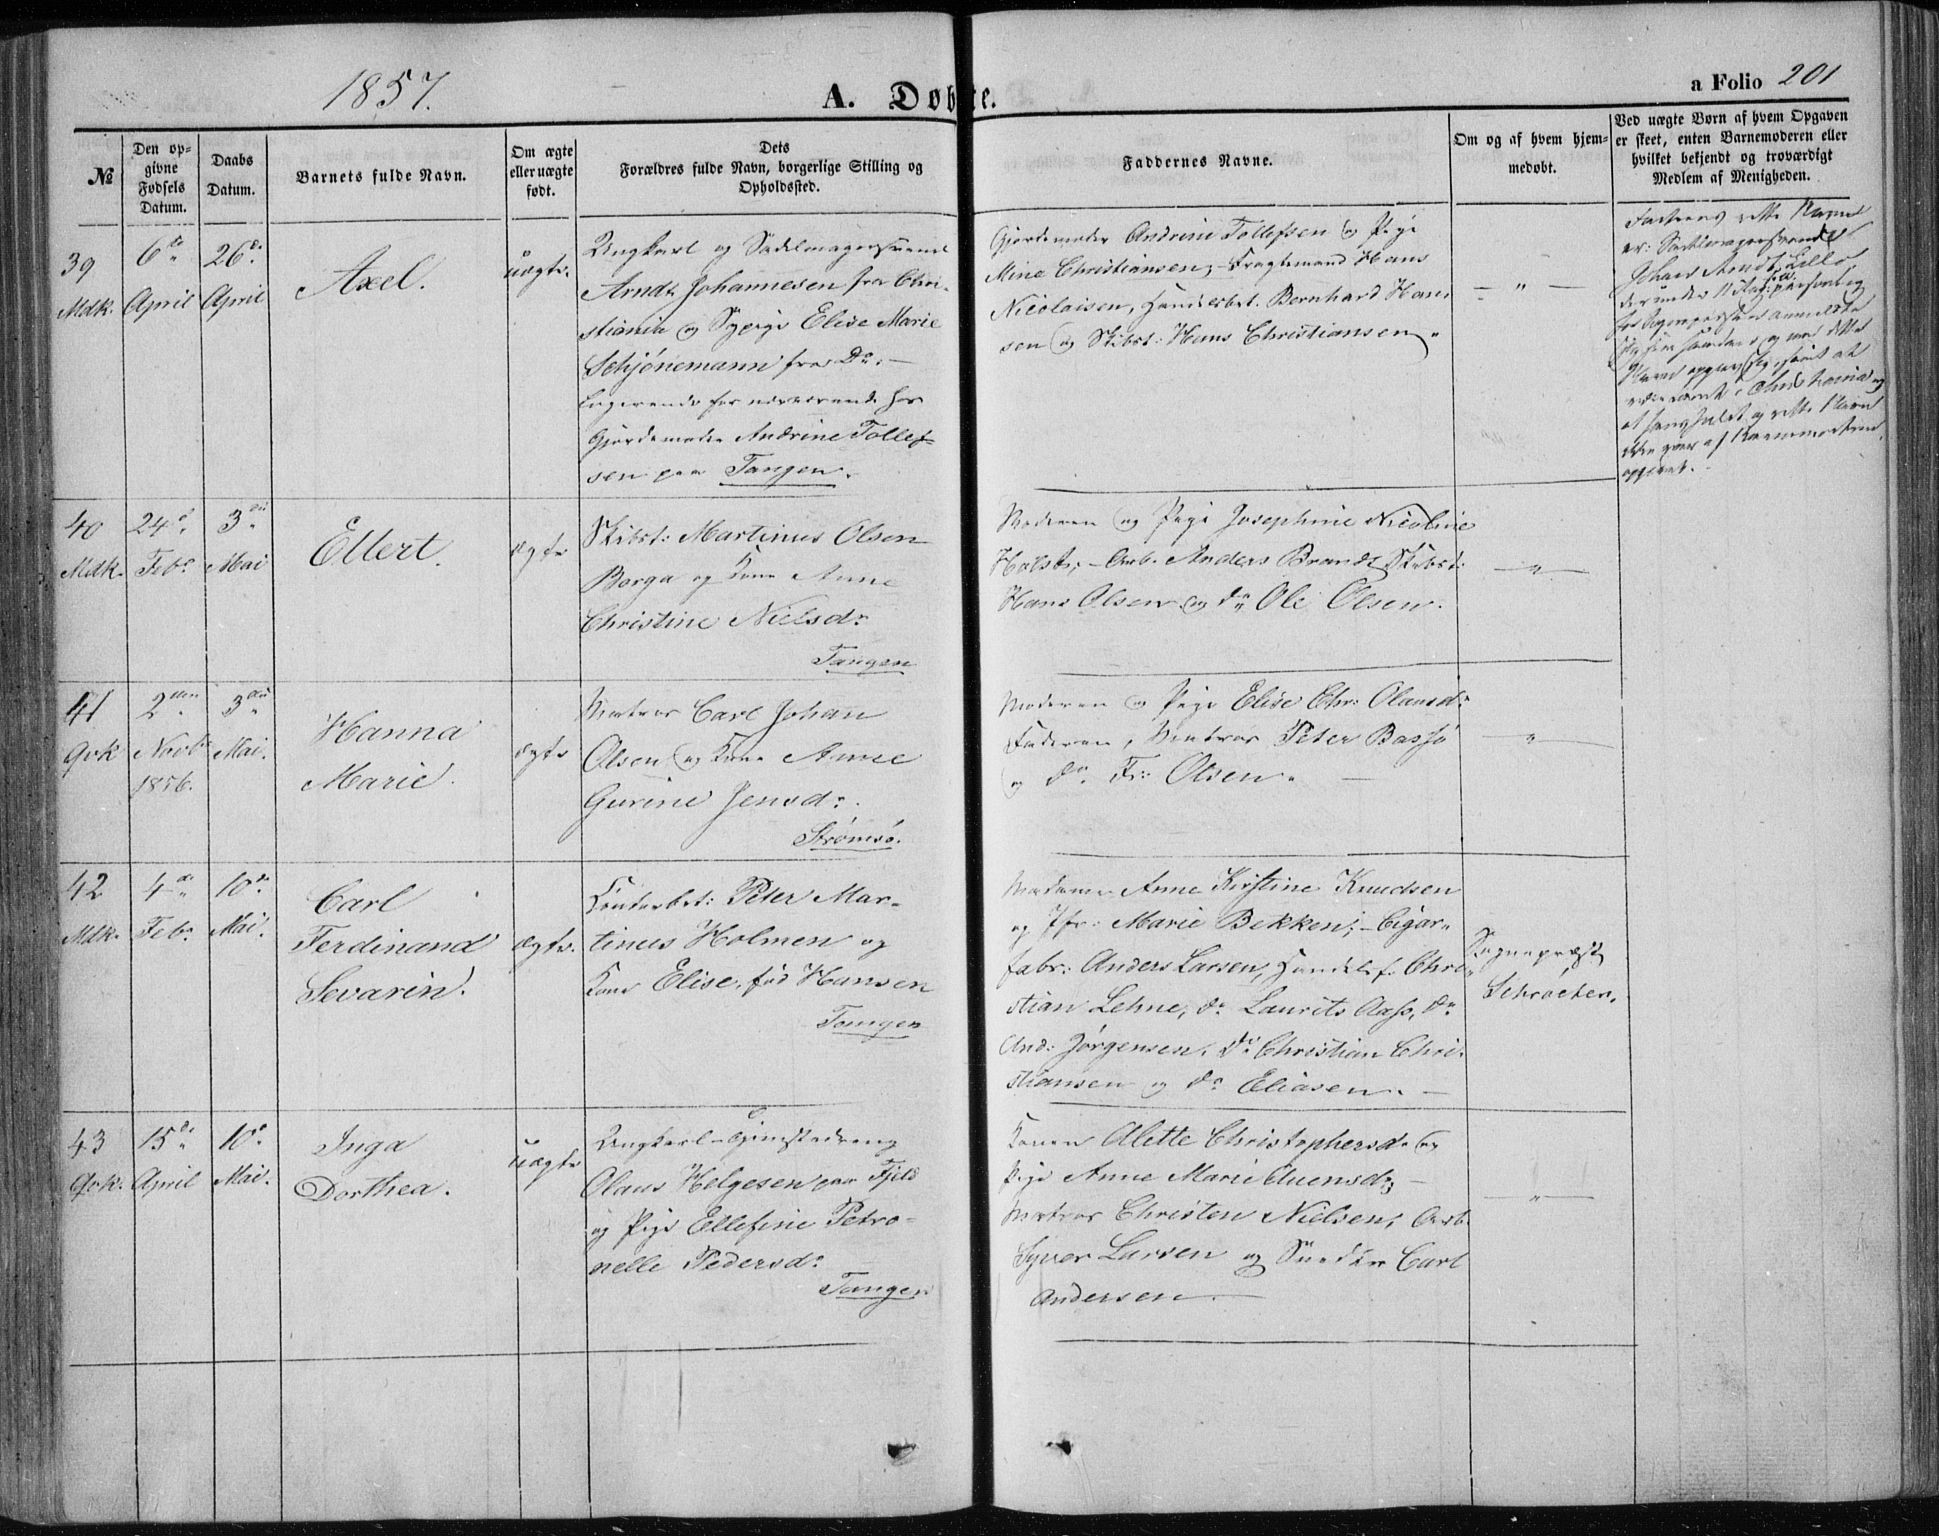 1857.
A. Døbte.
a Folio 201
№
Den opgivne Fødsels Datum.
Daabs Datum.
Barnets fulde Navn.
Om ægte eller uægte født.
Dets
Forældres fulde Navn, borgerlige Stilling og
Opholdssted.
Faddernes Navne.
Om og af hvem hjem-
medøbt.
Ved uægte Børn af hvem Opgaven
er skeet, enten Barnemoderen eller
hvilket bekjendt og troværdigt
Medlem af Menigheden.
39
Mdk.
6te
April
26de
April
Axel.
uægte.
Ungkarl og Sadelmagersvend
Arndt Johannesen fra Chri-
stiania og Sypige Elise Marie
Schjønemann fra Do. –
Logerende for nærværende hos
Gjordemoder Andrine Tollef-
sen paa Tangen.
Gjordemoder Andrine Tollefsen og Pige
Mine Christiansen, – Fragtemand Hans
Nicolaisen, Handelsbet. Bernhard Han-
sen og Skibst: Hans Christiansen.
– " –
Faderens rette Navn
er: Sadelmagersvend
Johan Arndt Lillo,
40
Mdk.
24d
Febr
3die
Mai
Ellert.
ægte
Skibst: Martinus Olsen
Borga og Kone Anne
Christine Nielsdr
Tangen
Moderen og Pige Josephine Nicoline
Holst; – Arb. Anders Brandt, Skibst:
Hans Olsen og do Ole Olsen.
– " –
41
Qvk
2den
Novbr
1856.
3die
Mai.
Hanna
Marie.
ægte
Matros Carl Johan
Olsen og Kone Anne
Gurine Jensdr.
Strømsø.
Moderen og Pige Elise Chr: Olausdr
Faderen, Matros Peter Bassø
og do. Fr: Olsen. –
– " –
42
Mdk.
4de
Febr.
10de
Mai.
Carl
Ferdinand
Sevarin.
ægte.
Contorbet: Peter Mar-
tinus Holmen og
Kone Elise, fød Hansen
Tangen
Madame Anne Kirstine Knudsen
og Jfr: Marie Bekken; – Cigar-
fabr: Anders Larsen, Handelsf. Chri-
stian Lehne, do Laurits Aass, do
And: Jørgensen, do Christian Chri-
stiansen og do Eliasen. –
Sognepræst
Schroeter.
43
Qvk.
15de
April
10de
Mai.
Inga
Dorthea.
uægte
Ungkarl
Olaus Helgesen paa Fjeld
og Pige Ellefine Petro-
nelle Pedersdr
Tangen
Konen Alette Christophersdr og
Pige Anne Marie Auensdr; –
Matros Christen Nielsen, Arb.
Syver Larsen og Snedker Carl
Andersen. –
– " –